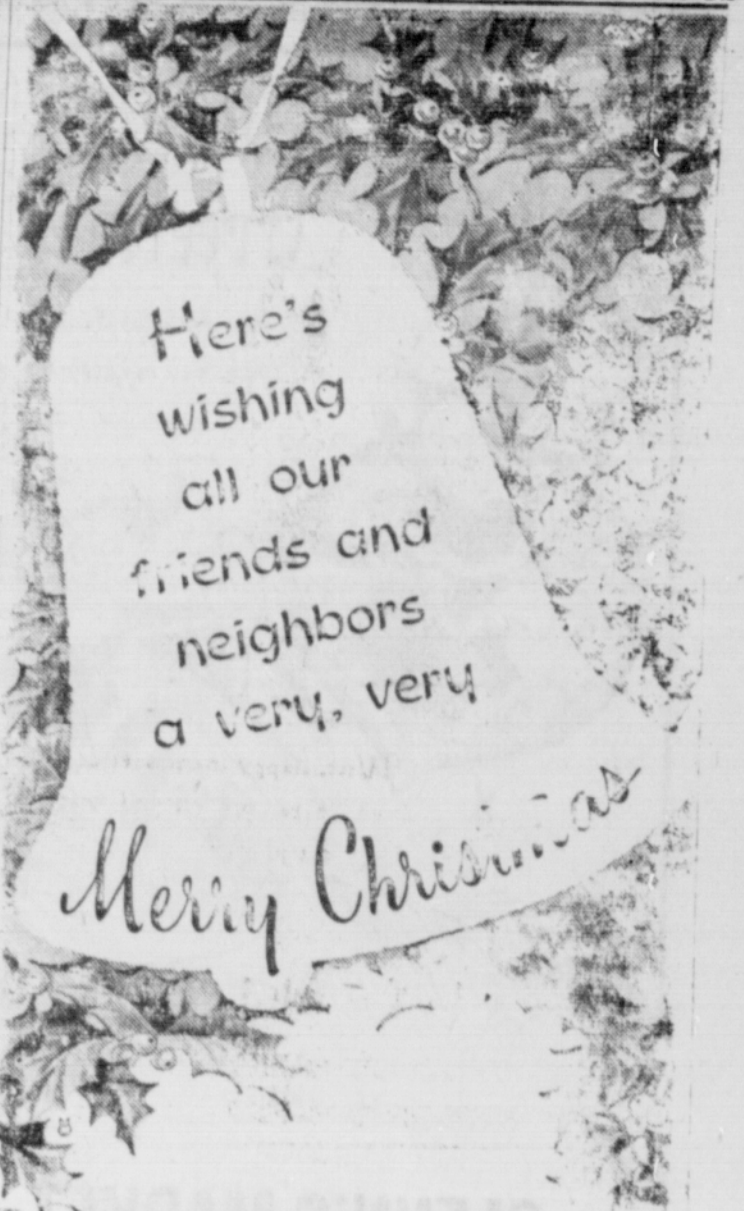 Here's
wishing
all our
friends and
neighbors
a very, very
Merry Christmas